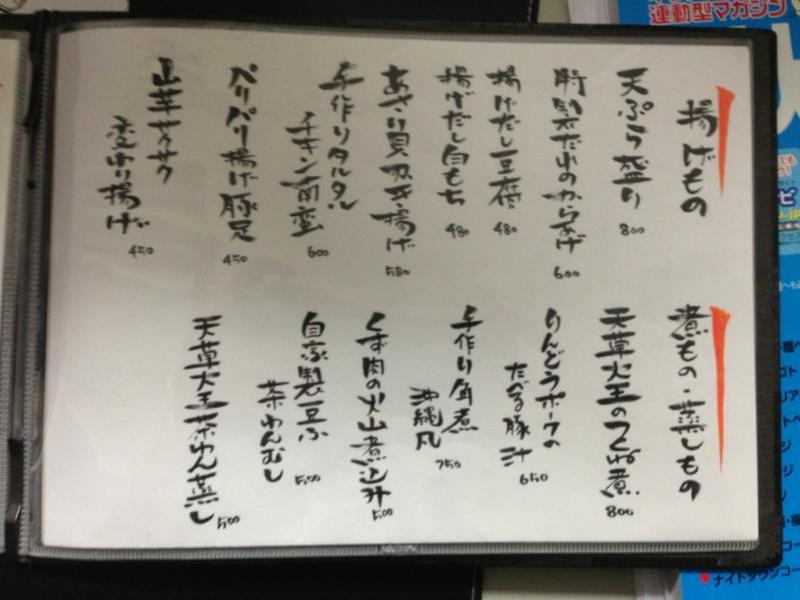 揚げもの
天ぷら盛り 800
特製だれのからあげ 600
揚げだし豆腐 480
揚げだし白もち 480
あさり貝かき揚げ 580
手作りタルタル
チキン南蛮 600
パリパリ揚げ豚足 450
山芋サクサク
変わり揚げ 450
煮もの・蒸しもの
天草大王のつくね煮 800
りんどうポークの
たべる豚汁 650
手作り角煮
沖縄風 750
くず肉の火山煮込み 500
自家製豆ふ
茶わんむし 500
天草大王茶わん蒸し 500
連動型マガジン
ナイトタウン